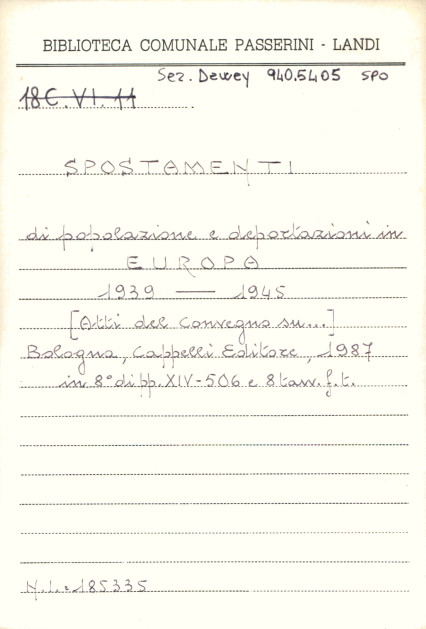 BIBLIOTECA COMUNALE PASSERINI - LANDI
Sez. Dewey 940.5405 SPO
18C.VI.11
SPOSTAMENTI
di popolazione e deportazioni in
EUROPA
1939 — 1945
[Atti del Convegno su...]
Bologna, Cappelli Editore, 1987
in 8° di pp. XIV-506 e 8 tav. f.t.
N.I.: 185335